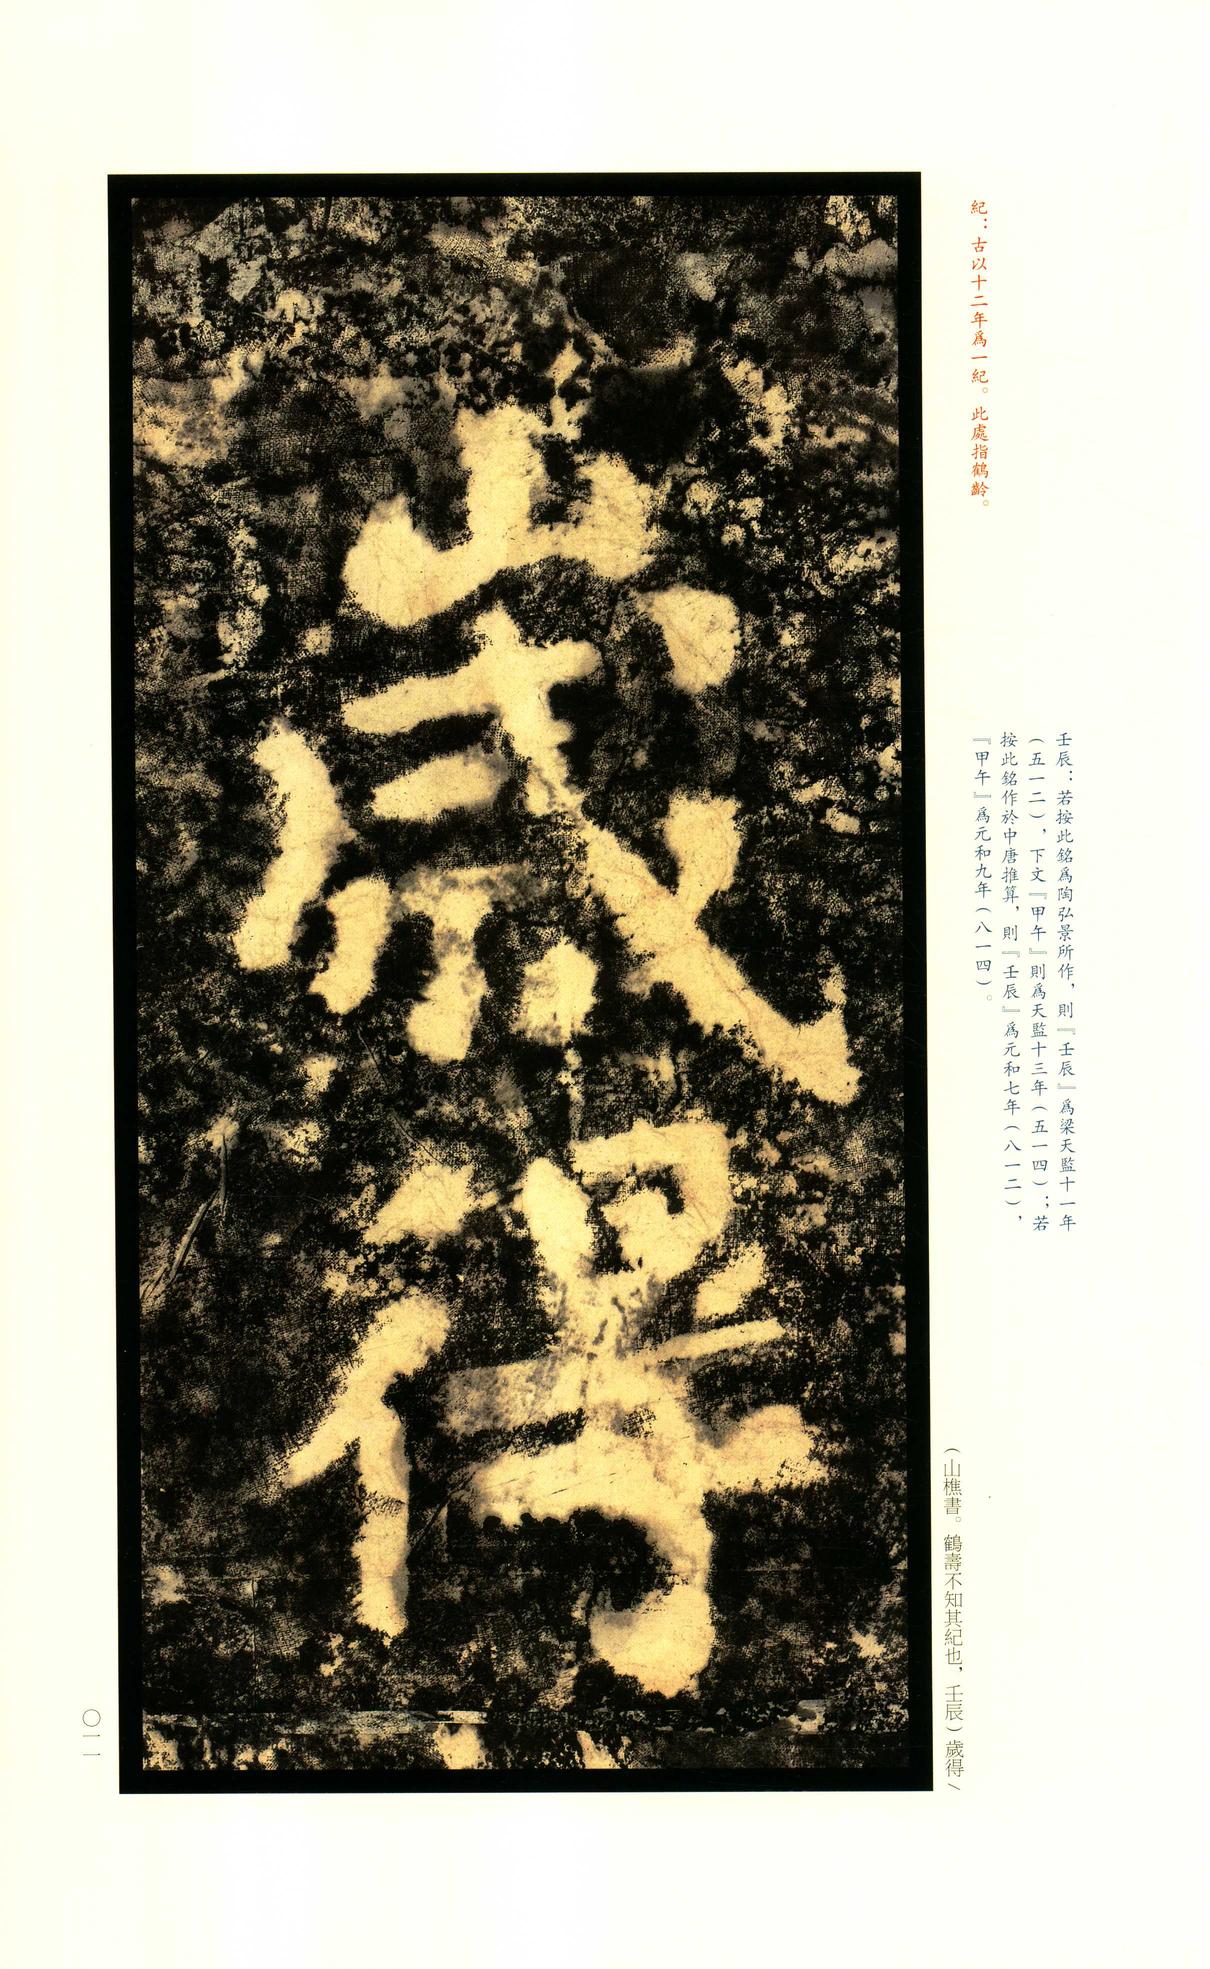 壬辰：若按此銘爲陶弘景所作，則『壬辰』爲梁天監十一年
（五一二），下文『甲午』則爲天監十三年（五一四）；若
按此銘作於中唐推算，則『壬辰』爲元和七年（八一二），
『甲午』爲元和九年（八一四）。
紀：古以十二年爲一紀。此處指鶴齡。
（山樵書。鶴壽不知其紀也，壬辰）歲得／
歲得
〇一一